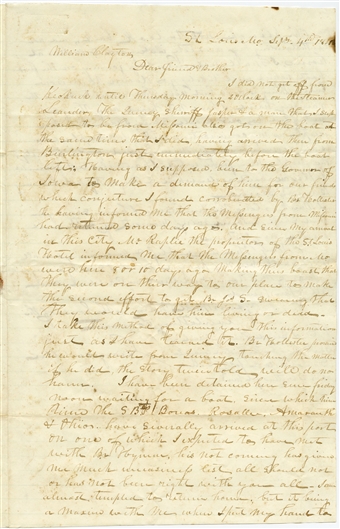 St Louis Mo. Sept 4th
William Clayton
Dear friend & Brother
I did not get off from
until Thursday morning on the Steamer
The Sheriff & a man that I sup
posed to be from Missouri also got on the boat at
the same time that I did having arrived there from
Burlington just immediately before the boat
left. Having as I supposed been to the Governor of
Iowa to make a demand of him for our friend
which conjecture I found corroborated by Br Hollister
he having informed me that the Messengers from Missouri
had returned some days ago. And since my arrival
in this City Mr the proprietor of the St Louis
Hotel informed me that the Messengers from Mo
were here 8 or 10 days ago making their boast that
they were on their way to our place to make
the second effort to get Br Jos S. swearing that
they would have him living or dead.
I take this method of giving you this information
just as I have learned it. Br Hollister
he would write from Quincy touching the matter
if he did the story twice told will do no
harm. I have been detained here since friday
noon waiting for a boat. Since which time
the Rosalie &
& others have severally arrived at this port
on one of which I expected to have met
with Br his not coming has given
me much uneasiness lest all should not
or has not been right with you all. I am
almost tempted to return home, but it being
a maxim with me when I put my hand to